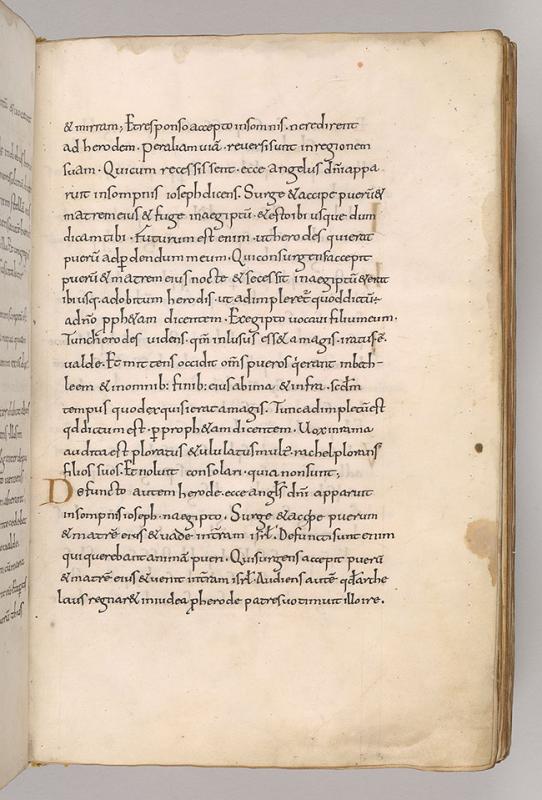 & mirram; Et responso accepto insomnis. ne redirent
ad herodem. Per aliam uiā. reversi sunt in regionem
suam. Qui cum recessissent. ecce angelus dn̄i appa
ruit insompnis ioseph dicens. Surge & accipe puerū &
matrem eius & fuge in aegiptū. & esto ibi usque dum
dicam tibi. Futurum est enim. ut herodes quierat
puerū ad pdendum meum. Qui consurgens accepit
puerū & matrem eius nocte. & secessit in aegiptū & erat
ibi usq. ad obitum herodis. ut adimpleret quod dictū÷
a dn̄o pph&am dicentem. Ex egipto vocaui filium eum.
Tunc herodes videns. qm̄ inlusus ess& a magis. iratus ē.
valde. Et mittens occidit om̄s pueros q̄ erant in beth-
leem & in omnib: finib: eius a bima & infra. scdm̄
tempus quod exquisierat a magis. Tunc adimpletū est
qd dictum est. p proph&am dicentem. Uox in rama
audita est ploratus & ululatus mult. rachel plorans
filios suos. Et noluit consolari. quia non sunt;
Defuncto autem herode. ecce angls dn̄i apparuit
insompnis ioseph. n aegipto. Surge & accipe puerum
& matrē eius & uade in t̄ram isrl. Defuncti sunt enim
qui querebant animā pueri. Qui surgens accepit puerū
& matrē eius & uenit in t̄ram isrl. Audiens autē qd arche
laus regnar& in iudea p herode patre suo timuit illo ire.